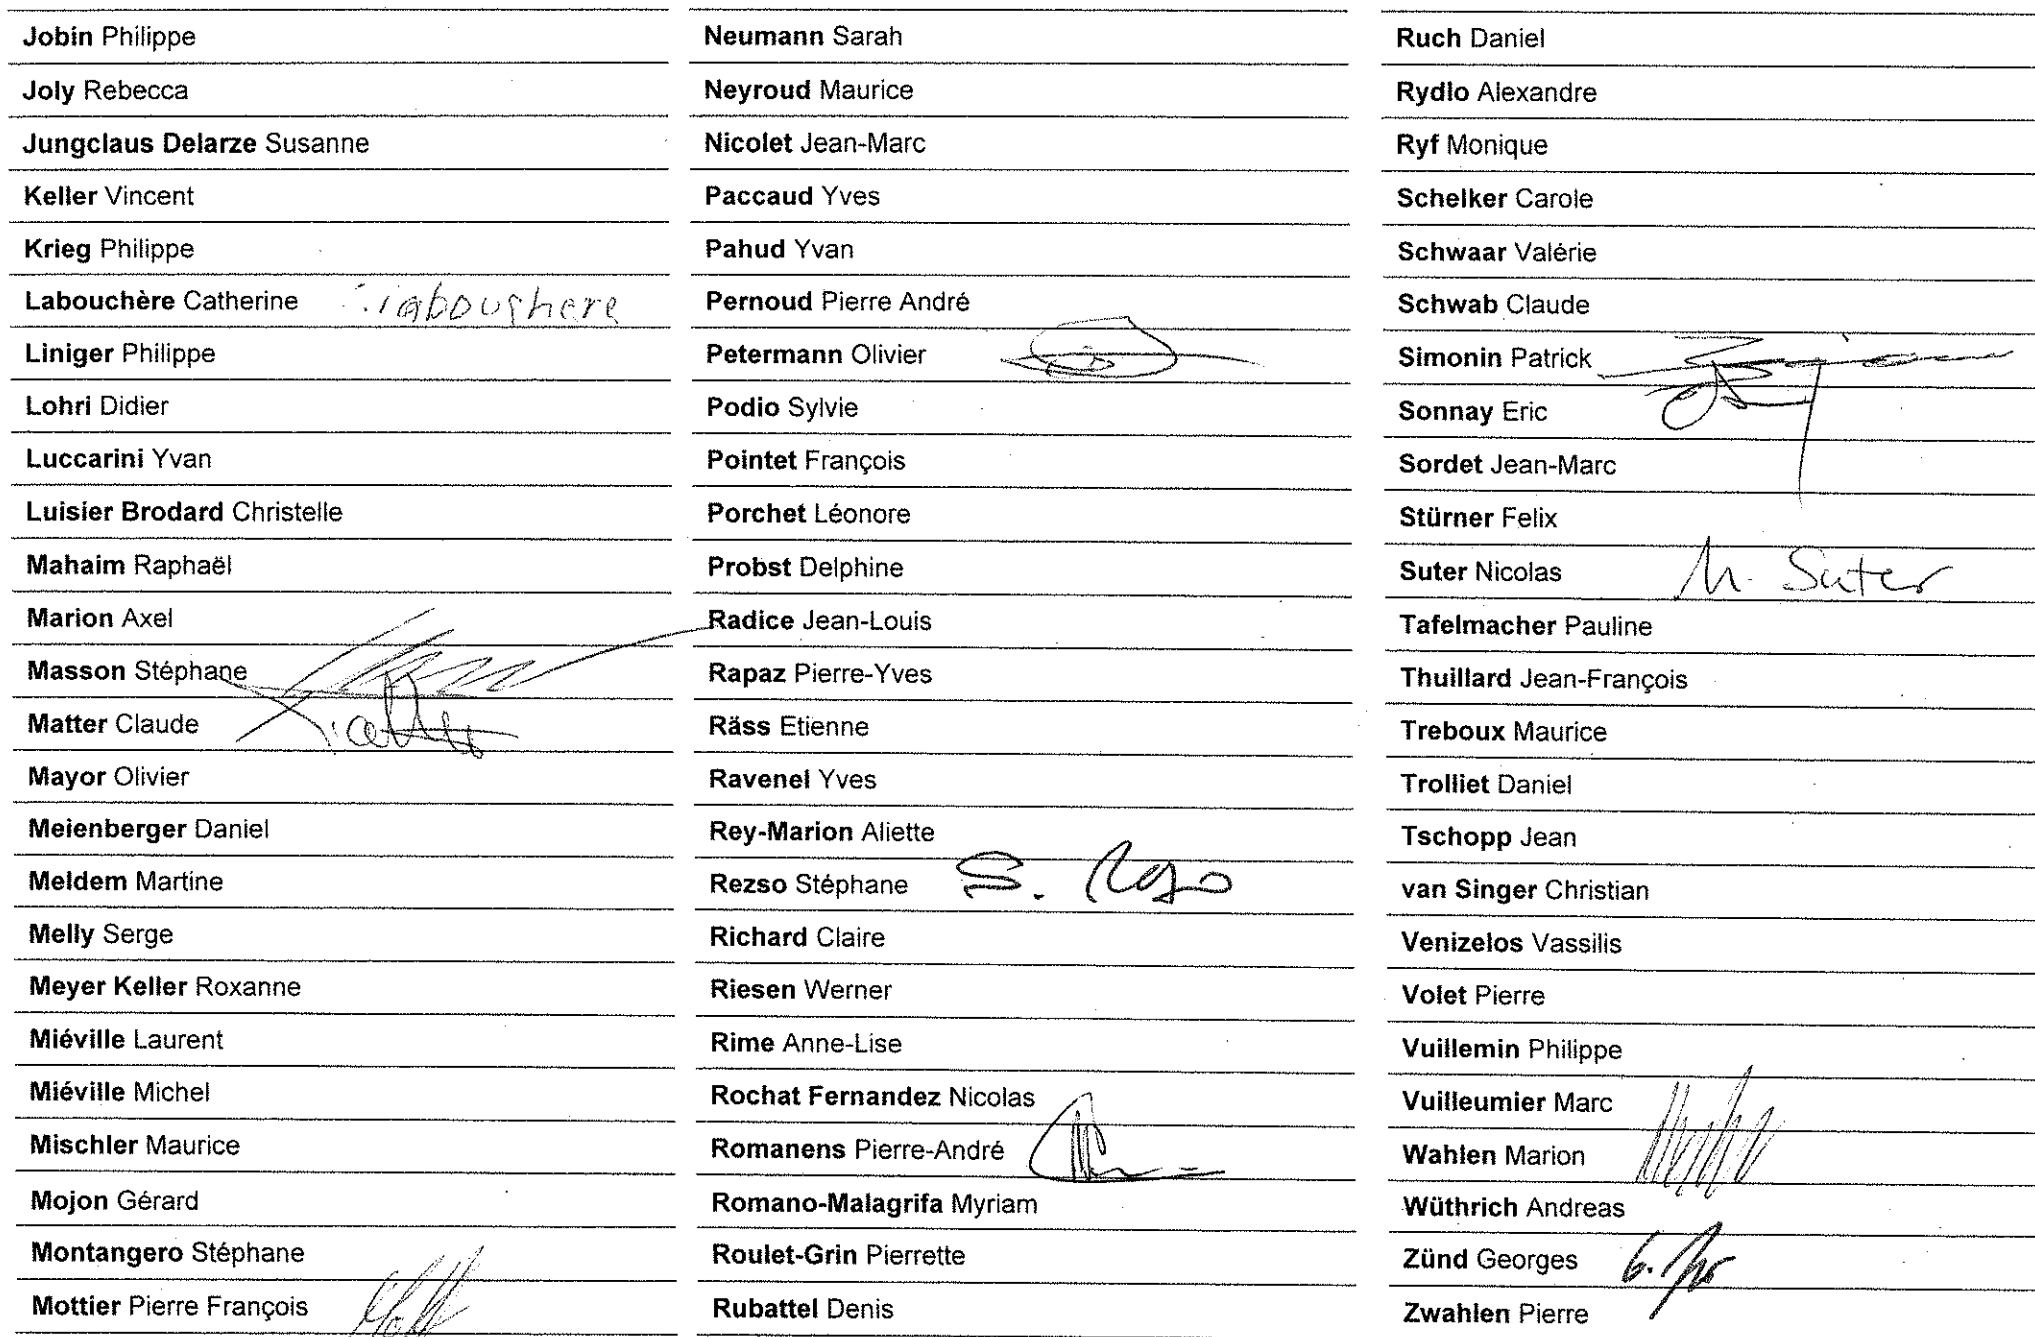 Jobin Philippe
Joly Rebecca
Jungclaus Delarze Susanne
Keller Vincent
Krieg Philippe
Labouchère Catherine
Liniger Philippe
Lohri Didier
Luccarini Yvan
Luisier Brodard Christelle
Mahaim Raphaël
Marion Axel
Masson Stéphane
Matter Claude
Mayor Olivier
Meienberger Daniel
Meldem Martine
Melly Serge
Meyer Keller Roxanne
Miéville Laurent
Miéville Michel
Mischler Maurice
Mojon Gérard
Montangero Stéphane
Mottier Pierre François
Neumann Sarah
Neyroud Maurice
Nicolet Jean-Marc
Paccaud Yves
Pahud Yvan
Pernoud Pierre André
Petermann Olivier
Podio Sylvie
Pointet François
Porchet Léonore
Probst Delphine
Radice Jean-Louis
Rapaz Pierre-Yves
Räss Etienne
Ravenel Yves
Rey-Marion Aliette
Rezso Stéphane S.
Richard Claire
Riesen Werner
Rime Anne-Lise
Rochat Fernandez Nicolas
Romanens Pierre-André
Romano-Malagrifa Myriam
Roulet-Grin Pierrette
Rubattel Denis
Ruch Daniel
Rydlo Alexandre
Ryf Monique
Schelker Carole
Schwaar Valérie
Schwab Claude
Simonin Patrick
Sonnay Eric
Sordet Jean-Marc
Stürner Felix
Suter Nicolas N. Suter
Tafelmacher Pauline
Thuillard Jean-François
Treboux Maurice
Trolliet Daniel
Tschopp Jean
van Singer Christian
Venizelos Vassilis
Volet Pierre
Vuillemin Philippe
Vuilleumier Marc
Wahlen Marion
Wüthrich Andreas
Zünd Georges G.
Zwahlen Pierre